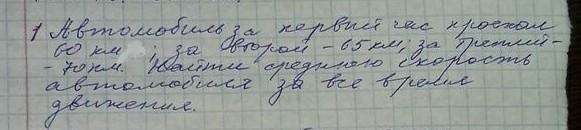 1 Автомобиль за первый час проехал
60 км ; за второй - 65 км; за третий -
- 70 км. Найти среднюю скорость
автомобиля за все время
движения.